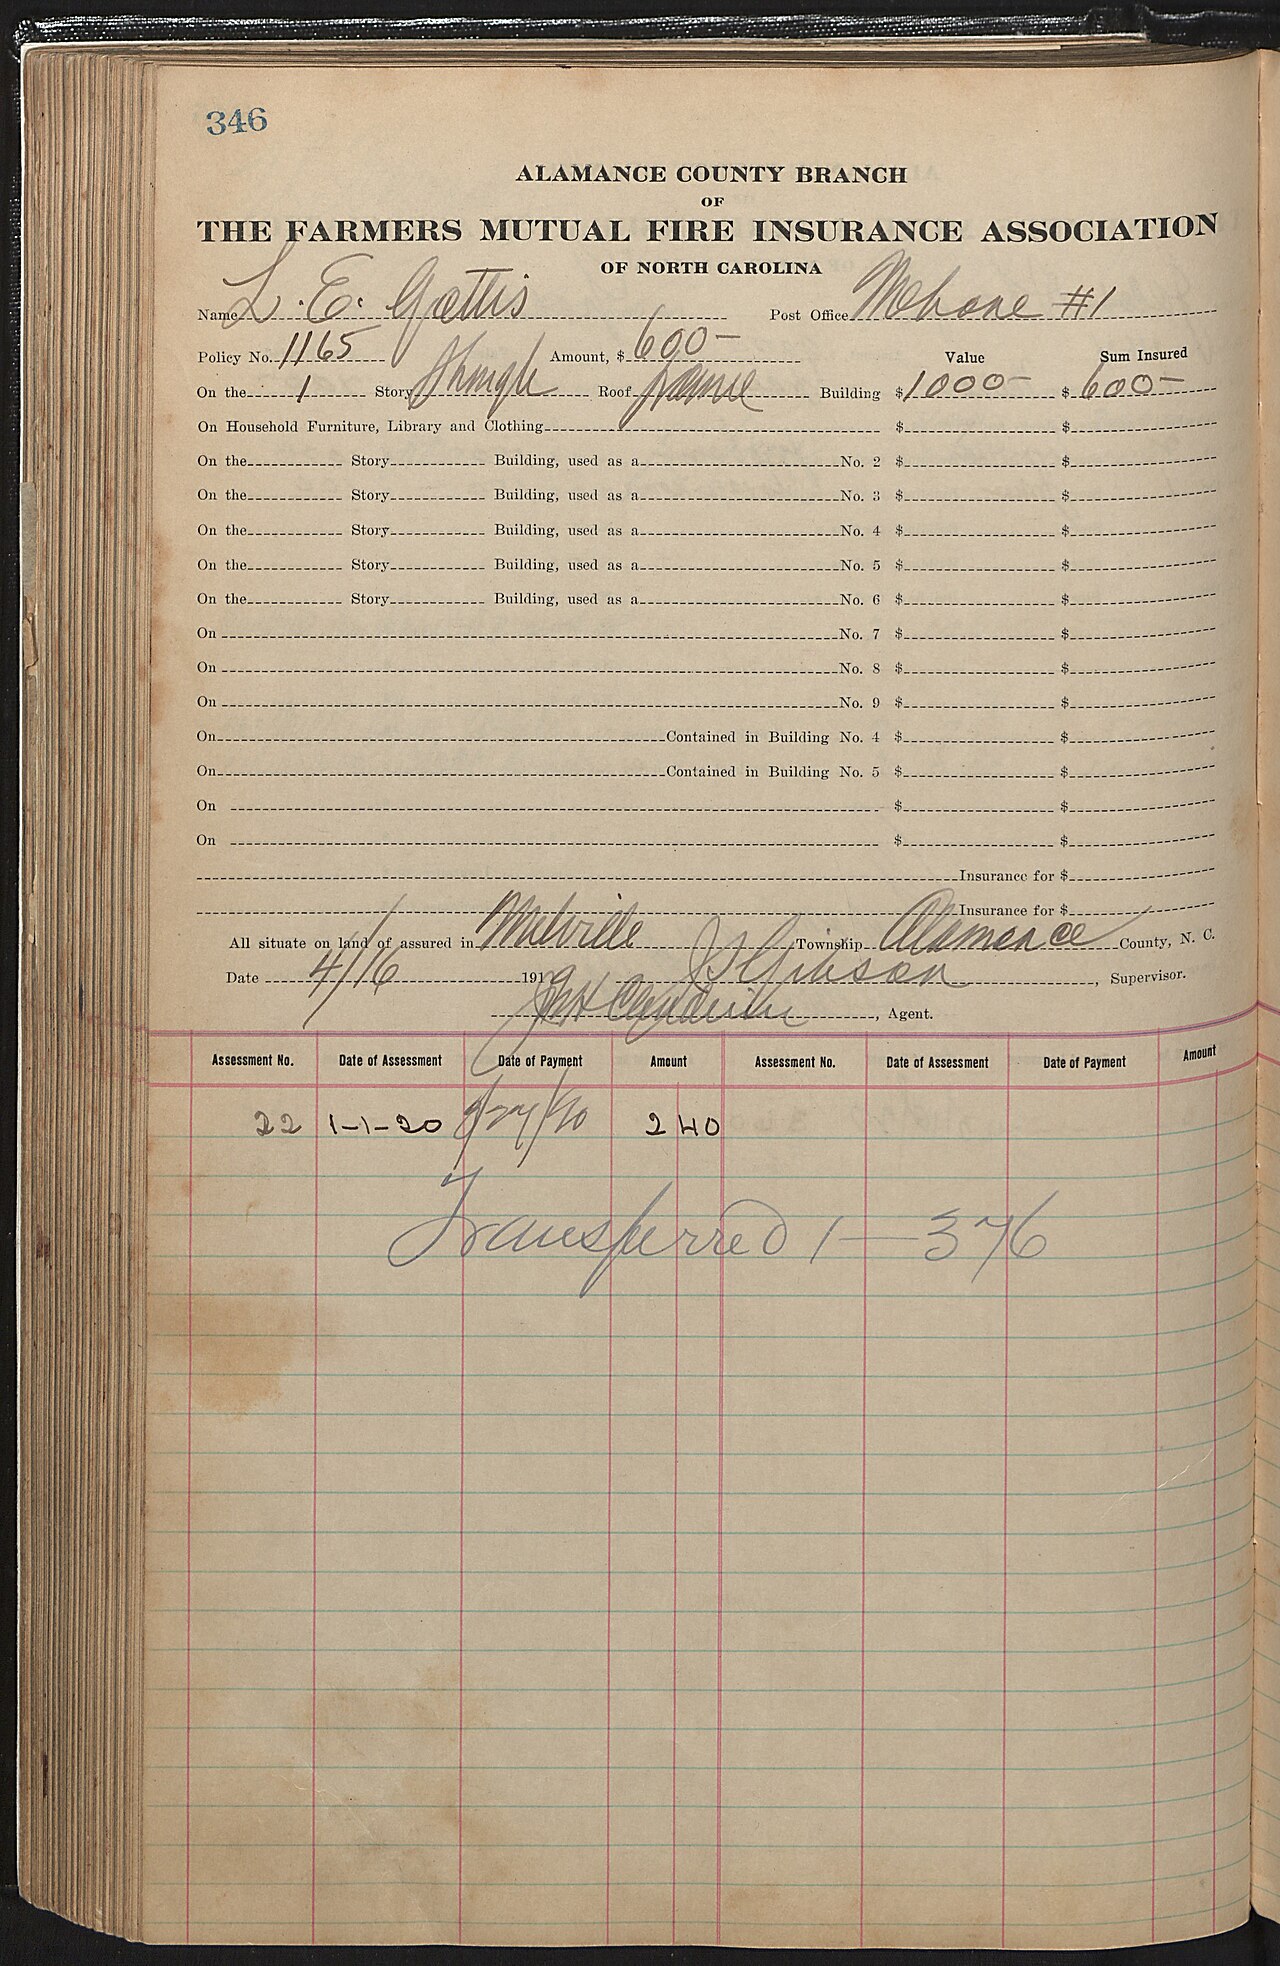 346
ALAMANCE COUNTY BRANCH
OF
THE FARMERS MUTUAL FIRE INSURANCE ASSOCIATION
OF NORTH CAROLINA
Name L. E. Gattis Post Office Mebane #1
Policy No. 1165 Amount, $ 600– Value Sum Insured
On the 1 Story Shingle Roof frame Building $ 1000– $ 600–
On Household Furniture, Library and Clothing $ $
On the Story Building, used as a No. 2 $ $
On the Story Building, used as a No. 3 $ $
On the Story Building, used as a No. 4 $ $
On the Story Building, used as a No. 5 $ $
On the Story Building, used as a No. 6 $ $
On No. 7 $ $
On No. 8 $ $
On No. 9 $ $
On Contained in Building No. 4 $ $
On Contained in Building No. 5 $ $
On $ $
On $ $
Insurance for $
Insurance for $
All situate on land of assured in Melville Township Alamance County, N. C.
Date 4/16 1919 J S Gibson, Supervisor.
, Agent.
Assessment No. Date of Assessment Date of Payment Amount Assessment No. Date of Assessment Date of Payment Amount
22 1-1-20 /20 2 40
Transferred 1—376